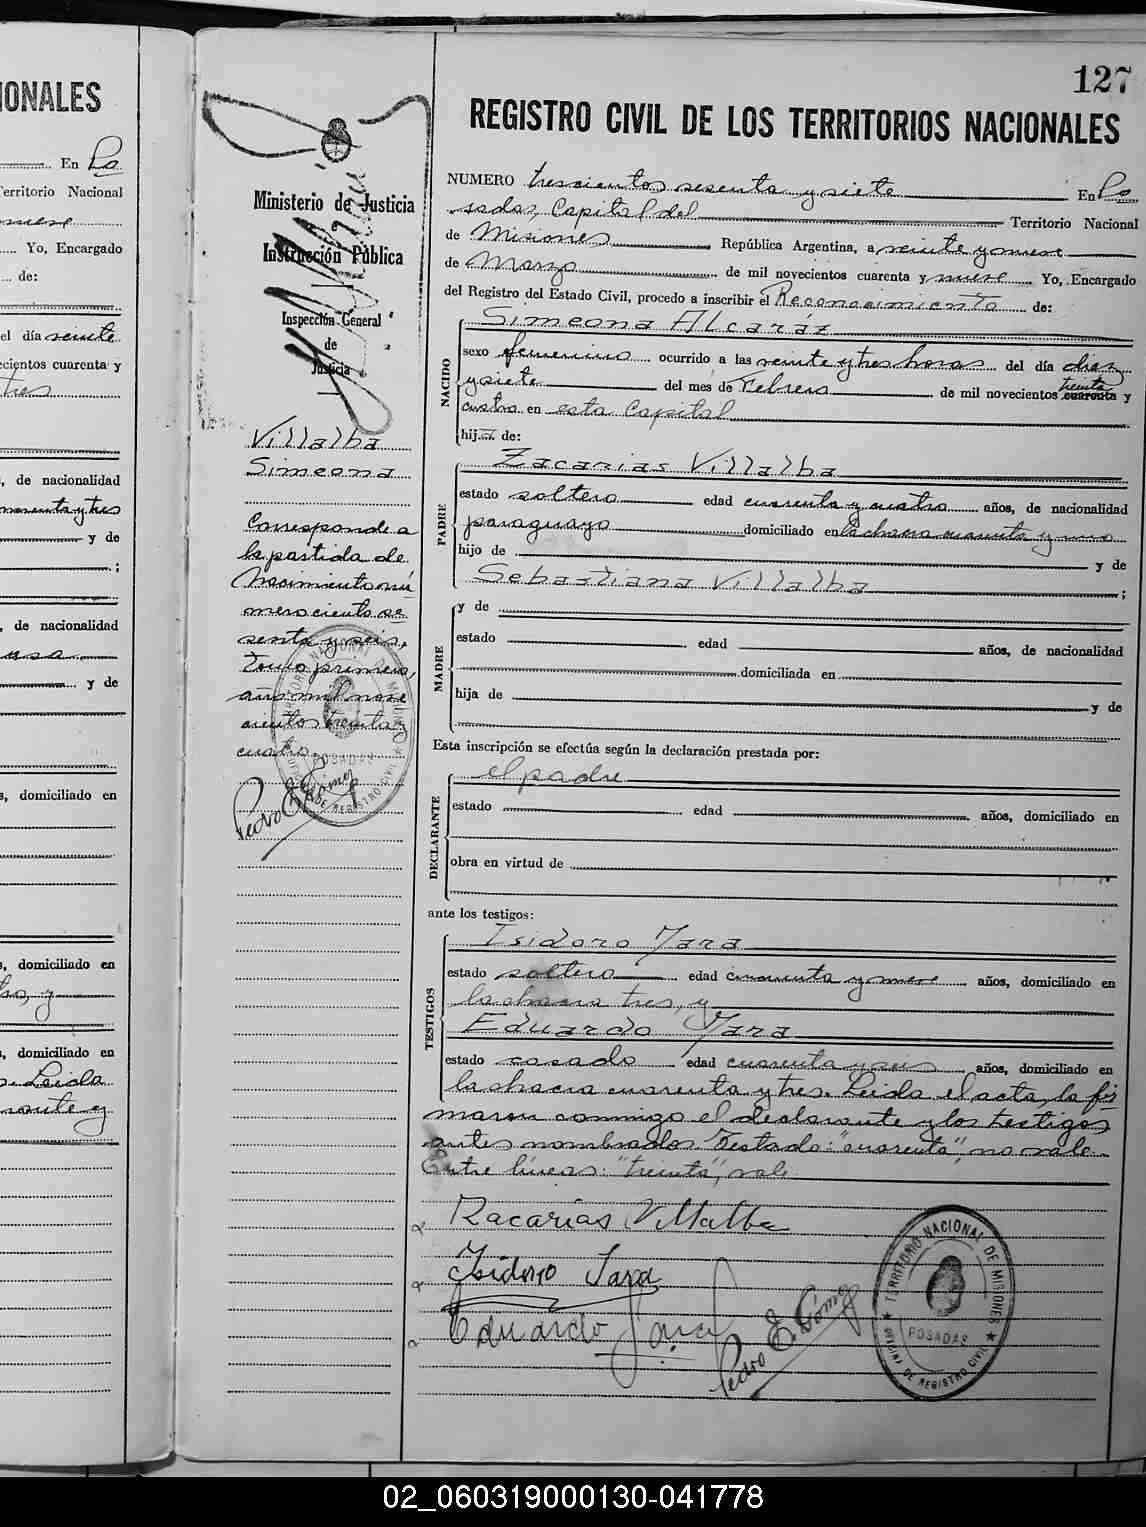 IONALES
En Po
erritorio Nacional
Yo, Encargado
de:
el día veinte
ecientos cuarenta y
tres
, de nacionalidad
y de
;
, de nacionalidad
y de
s, domiciliado en
s, domiciliado en
y
s, domiciliado en
Leida
y
Ministerio de Justicia
Instrucción Pública
Inspección General
de
Justicia
Villalba
Simeona
Corresponde a
la partida de
Nacimiento nú
mero ciento se
senta y seis,
tomo primero,
año mil nove
cientos treinta y
cuatro.
Pedro E. Gómez
TERRITORIO NACIONAL DE MISIONES
POSADAS
OFICINA DE REGISTRO CIVIL
127
REGISTRO CIVIL DE LOS TERRITORIOS NACIONALES
NUMERO trescientos sesenta y siete En Po
sadas, Capital del Territorio Nacional
de Misiones República Argentina, a veinte y nueve
de Marzo de mil novecientos cuarenta y nueve Yo, Encargado
del Registro del Estado Civil, procedo a inscribir el Reconocimiento de:
Simeona Alcaráz
NACIDO
sexo femenino ocurrido a las veinte y tres horas del día diez
treinta
y siete del mes de Febrero de mil novecientos cuarenta y
cuatro en esta Capital
hija de:
PADRE
Zacarias Villalba
estado soltero edad cuarenta y cuatro años, de nacionalidad
paraguayo domiciliado en la chacra cuarenta y uno
hijo de y de
Sebastiana Villalba ;
MADRE
y de
estado edad años, de nacionalidad
domiciliada en
hija de y de
Esta inscripción se efectúa según la declaración prestada por:
DECLARANTE
el padre
estado edad años, domiciliado en
obra en virtud de
ante los testigos:
TESTIGOS
Isidoro Jara
estado soltero edad cuarenta y nueve años, domiciliado en
la chacra tres, y
Eduardo Jara
estado casado edad cuarenta y seis años, domiciliado en
la chacra cuarenta y tres. Leida el acta, la fir
maron conmigo el declarante y los testigos
antes nombrados. Testado: "cuarenta", no vale.
Entre líneas: "treinta", vale.
Racarias Villalba
Isidoro Jara
Eduardo Jara
Pedro E. Gómez
TERRITORIO NACIONAL DE MISIONES
POSADAS
OFICINA DE REGISTRO CIVIL
02_060319000130-041778